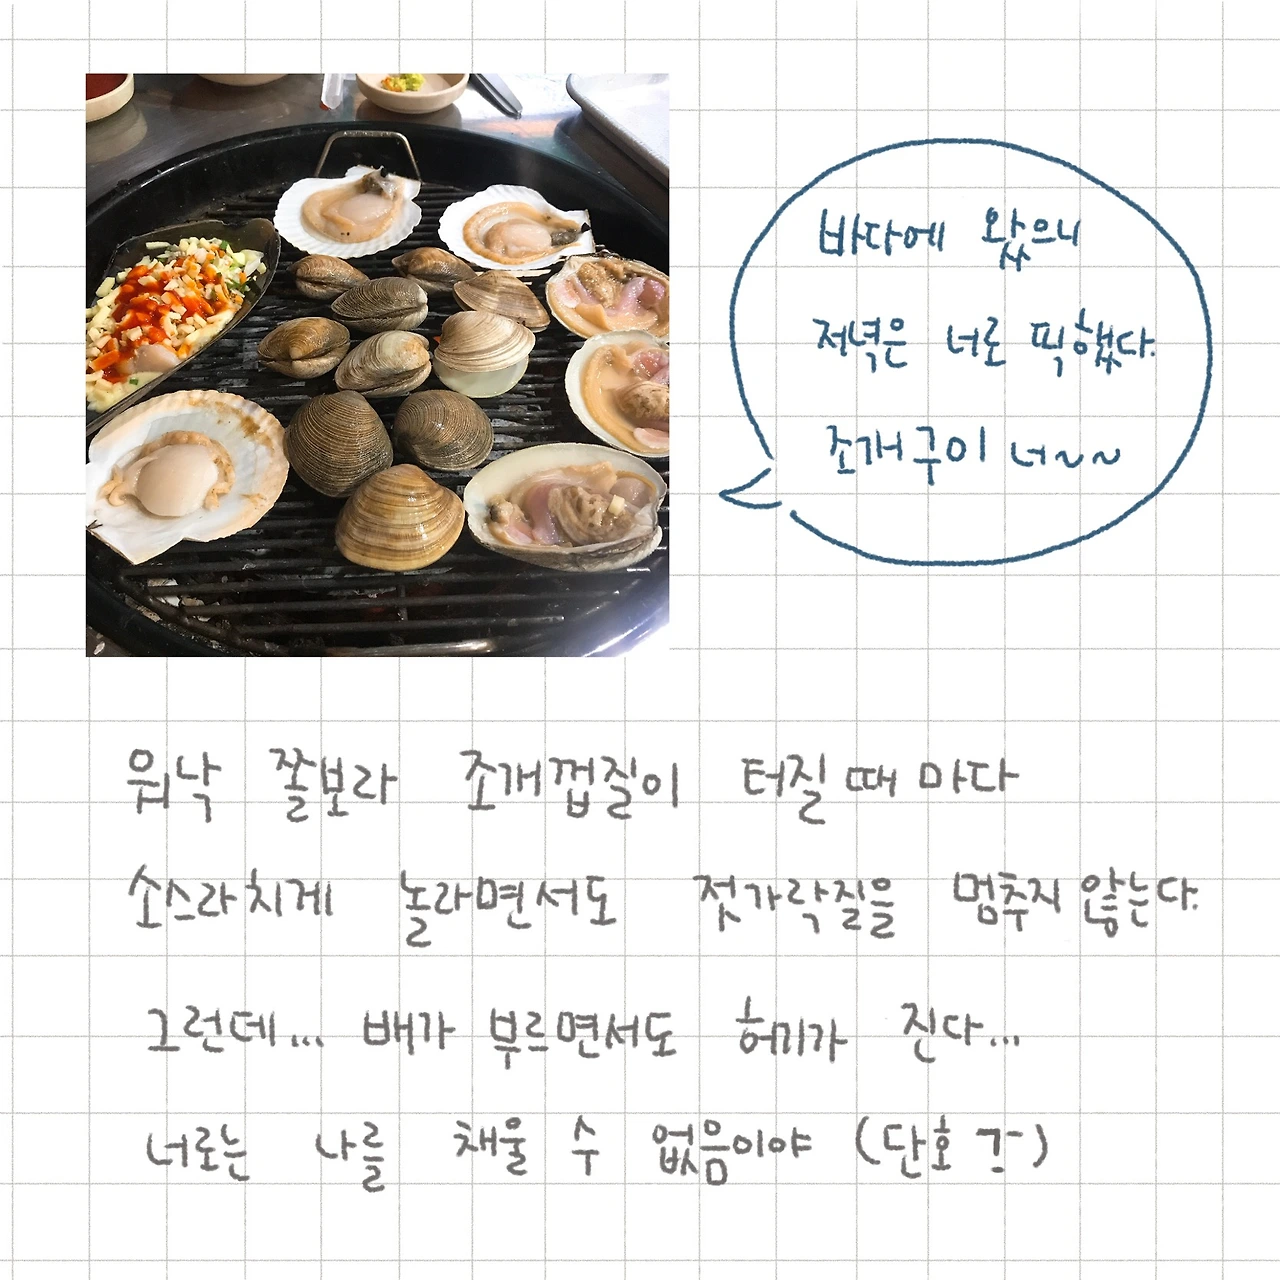 바다에 왔으니
저녁은 너로 픽했다.
조개구이 너~~
워낙 쫄보라 조개껍질이 터질 때 마다
소스라치게 놀라면서도 젓가락질을 멈추지 않는다.
그런데... 배가 부르면서도 허기가 진다...
너로는 나를 채울 수 없음이야 (단호